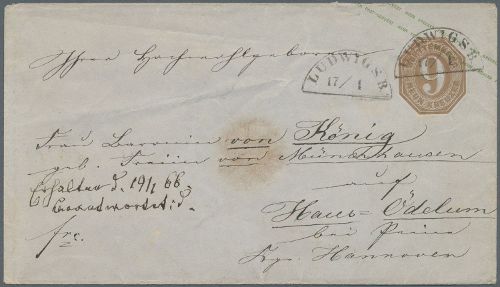 Ihrer Hochwohlgeboren
LUDWIGSB.
17/1
LUDWIGSB.
9
Frau Baronin von König
geb. Freiin von Münchhausen
Erhalten d. 19/1 66
Beantwortet: d.
auf
Haus=Ödelum
frc.
bei Peine
Kgr. Hannover